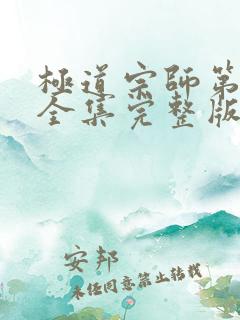 極道宗師第
全集完整版
安邦
未经同意禁止转载